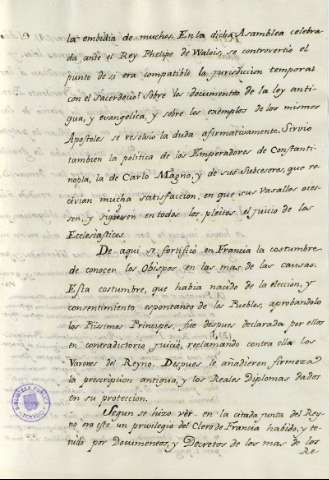 la embidia de muchos. En la dicha Asamblea celebra
da ante el Rey Phelipe de Walois, se controvertio el
punto de si era compatible la jurisdicion temporal
con el Sacerdocio? Sobre los documentos de la ley anti-
gua, y evangelica, y sobre los exemplos de los mismos
Apostoles se resolvio la duda afirmativamente. Sirvio
tambien la politica de los Emperadores de Constanti-
nopla, la de Carlo Magno, y de sus Subcesores, que re-
civian mucha satisfaccion, en que sus Vasallos
sen, y siguiesen en todos los pleitos el juicio de los
Ecclesiasticos.
De aqui se fortificó en Francia la costumbre
de conocer los Obispos en las mas de las causas.
Esta costumbre, que habia nacido de la eleccion, y
consentimiento espontaneo de los Pueblos, aprobandolo
los Piisimos Principes, fue despues declarada por ellos
en contradictorio juicio, reclamando contra ella los
Varones del Reyno. Despues le añadieron firmeza
la prescripcion antigua, y los Reales Diplomas dados
en su proteccion.
Segun se hizo vér en la citada junta del Rey-
no era este un privilegio del Clero de Francia habido, y te-
nido por Documentos, y Decretos de los mas de los
Re